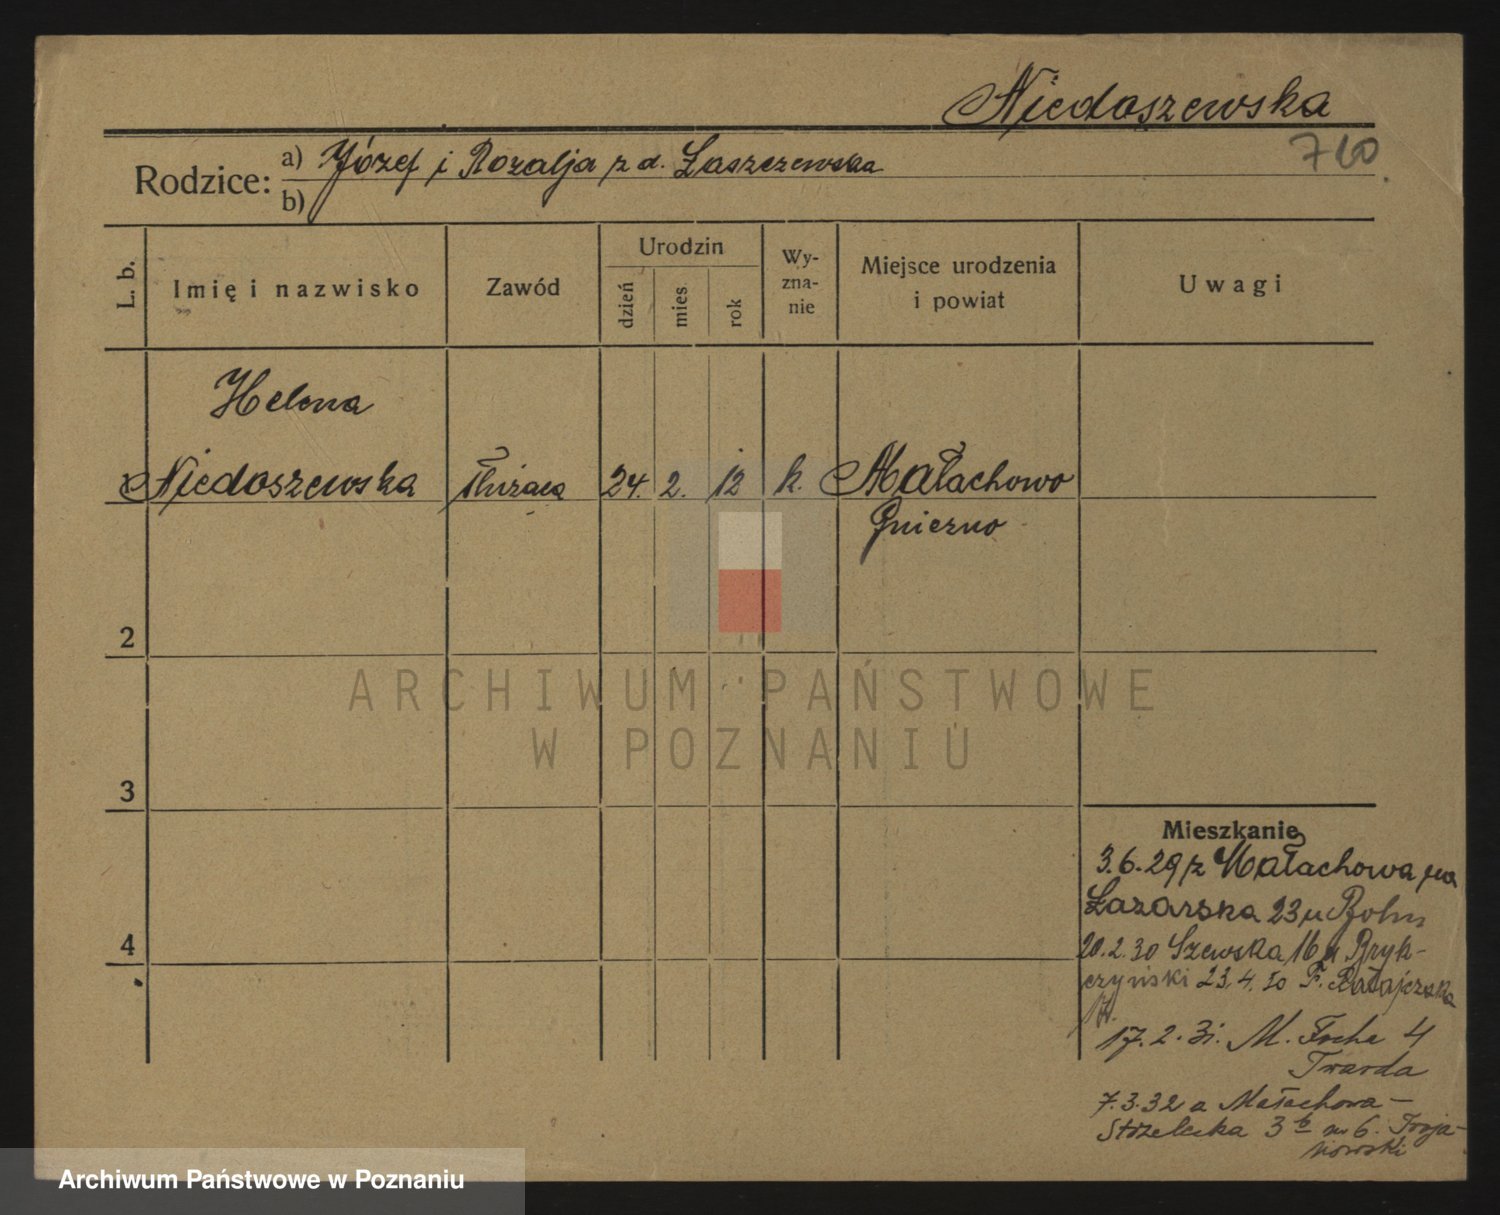 Niedoszewska
760
Rodzice: a) Józef i Rozalja z d. Łaszczewska
b)
L. b.
Imię i nazwisko
Zawód
Urodzin
dzień
mies
rok
Wy-
zna-
nie
Miejsce urodzenia
i powiat
Uwagi
Helena
1 Niedoszewska służąca 24. 2. 12 k. Małachowo
Gniezno
2
ARCHIWUM PAŃSTWOWE
W POZNANIU
3
Mieszkanie
3.6.29 z Małachowa na
Łazarska 23 u Bohn
4
20.2.30 Szewska 16 u Bryk-
czyński 23.4.30 F. Ratajczaka
17.2.31. M. Focha 4
Twarda
7.3.32 a Małachowa -
Strzelecka 3 b m 6. Troja-
nowski
Archiwum Państwowe w Poznaniu